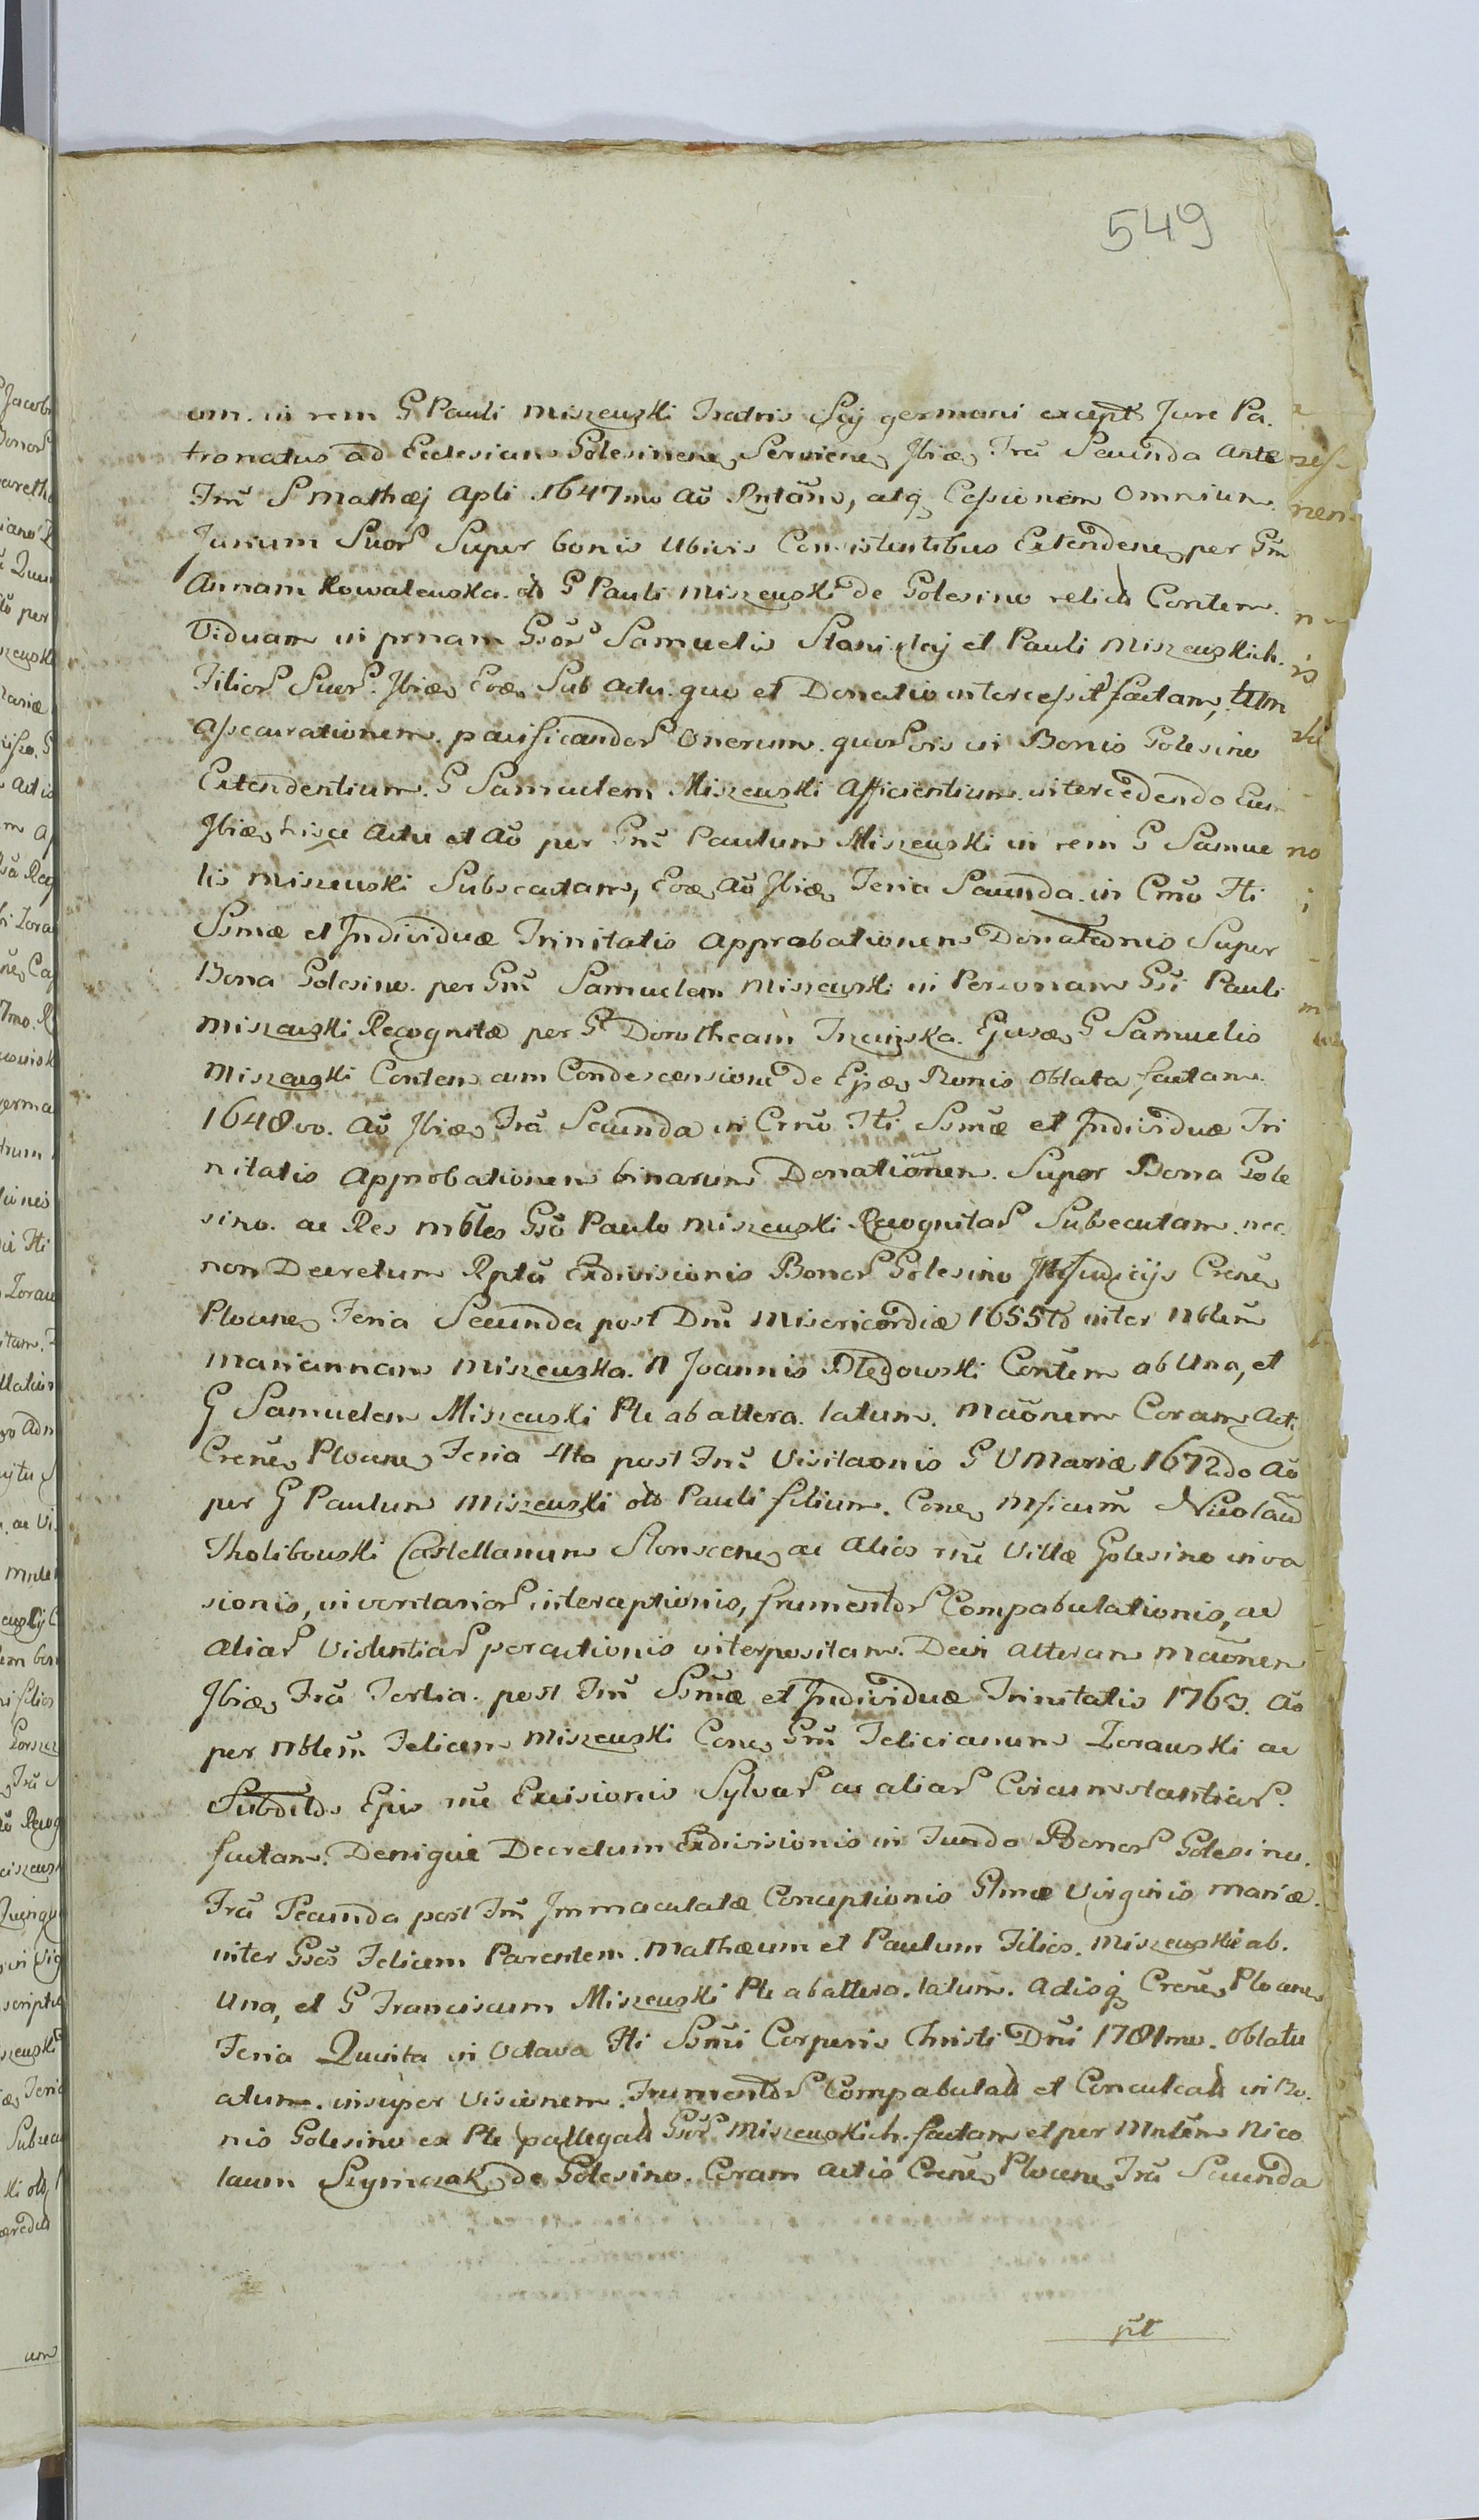 549
um. in rem G Pauli Miszewski Fratris Sui germani except Jure Pa.
tronatus ad Ecclesiam Golesinen Servien Ibiae Fra Secunda Ante
Fm S Mathaej Apli 1647mo Ao Rntam, atq Cessionem Omnium
Jurium Suor Super bonis Ubivis Consistentibus Extenden per Gm
Annam Kowalewska. olo G Pauli Miszewski de Golesino relict Contem.
Viduam in prnam Gsor Samuelis Stanislaj et Pauli Miszewskich.
Filior Suor. Ibiae Eod Sub actu quo et Donatio intercessit factam, tum
Assecurationem pacificandor Onerum quorvis in Bonis Golesino
Extendentium G Samuelem Miszewski Afficientium intercedendo Eum
Ibiae hisce Actu et Ao per Gm Paulum Miszewski in rem G Samue
lis Miszewski Subsecutam, Eod Ao Ibiae Feria Secunda in Crno Fti
Ssmae et Individuae Trinitatis Approbationem Donationis Super
Bona Golesino per Gm Samuelem Miszewski in Personam Gsi Pauli
Miszewski Recognitae per G Dorotheam Ejusd G Samuelis
Miszewski Contem cum Condescensione de Ejsd Bonis Oblata factam.
1648vo. Ao Ibiae Fra Secunda in Crno Fti Ssmae et Individuae Tri
nitatis Approbationem binarum Donationem. Super Bona Gole
sino. ac Res mbles Gso Paulo Miszewski Recognitar Subsecutam. nec
non Decretum Rptu Exdivisionis Bonor Golesino Judicijs Crene
Plocen Feria Secunda post Dm Misericordiae 1655to inter Nblem
Mariannam Miszewska. N Joannis Contem ab Una, et
G Samuelem Miszewski Pte ab altera. latum. Maonem Coram Act
Crene Plocen Feria 4ta post Fm Visitaonis G V Mariae 1672do Ao
per G Paulum Miszewski olo Pauli filium. Cone Mficum Nicolaum
Tholibowski Castellanum ac Alios rne Villae Golesino inva
sionis, inventarior interceptionis, frumentor Compabulationis, ac
aliar Violentiar peractionis interpositam. Dein alteram Maonem
Ibiae Fra Tertia post Fm Ssmae et Individuae Trinitatis 1763. Ao
per Nblem Felicem Miszewski Cone Gm Felicianum Zorawski ac
Subditos Ejus rne Excisionis Sylvar ac aliar Circumstantiar
factam. Denique Decretum Exdivisionis in Fundo Bonor Golesino.
Fra Secunda post Fm Immaculatae Conceptionis Glmae Virginis Mariae
inter Gsos Felicem Parentem. Mathaeum et Paulum Filios. Miszewskie ab.
Una, et G Franciscum Miszewski Pte ab altera. latum. Actisq Crene Plocen
Feria Quinta in Octava Fti Ssmi Corporis Christi Dni 1781mo. Oblatu
atum. insuper Visionem. Frumentor Compabulat et Conculcat in Bo.
nis Golesino ex Pte Gsor Miszewskich. factam et per Mntem Nico
laum Szymczak de Golesino. Coram Actis Crene Plocen Fra Secunda
pt